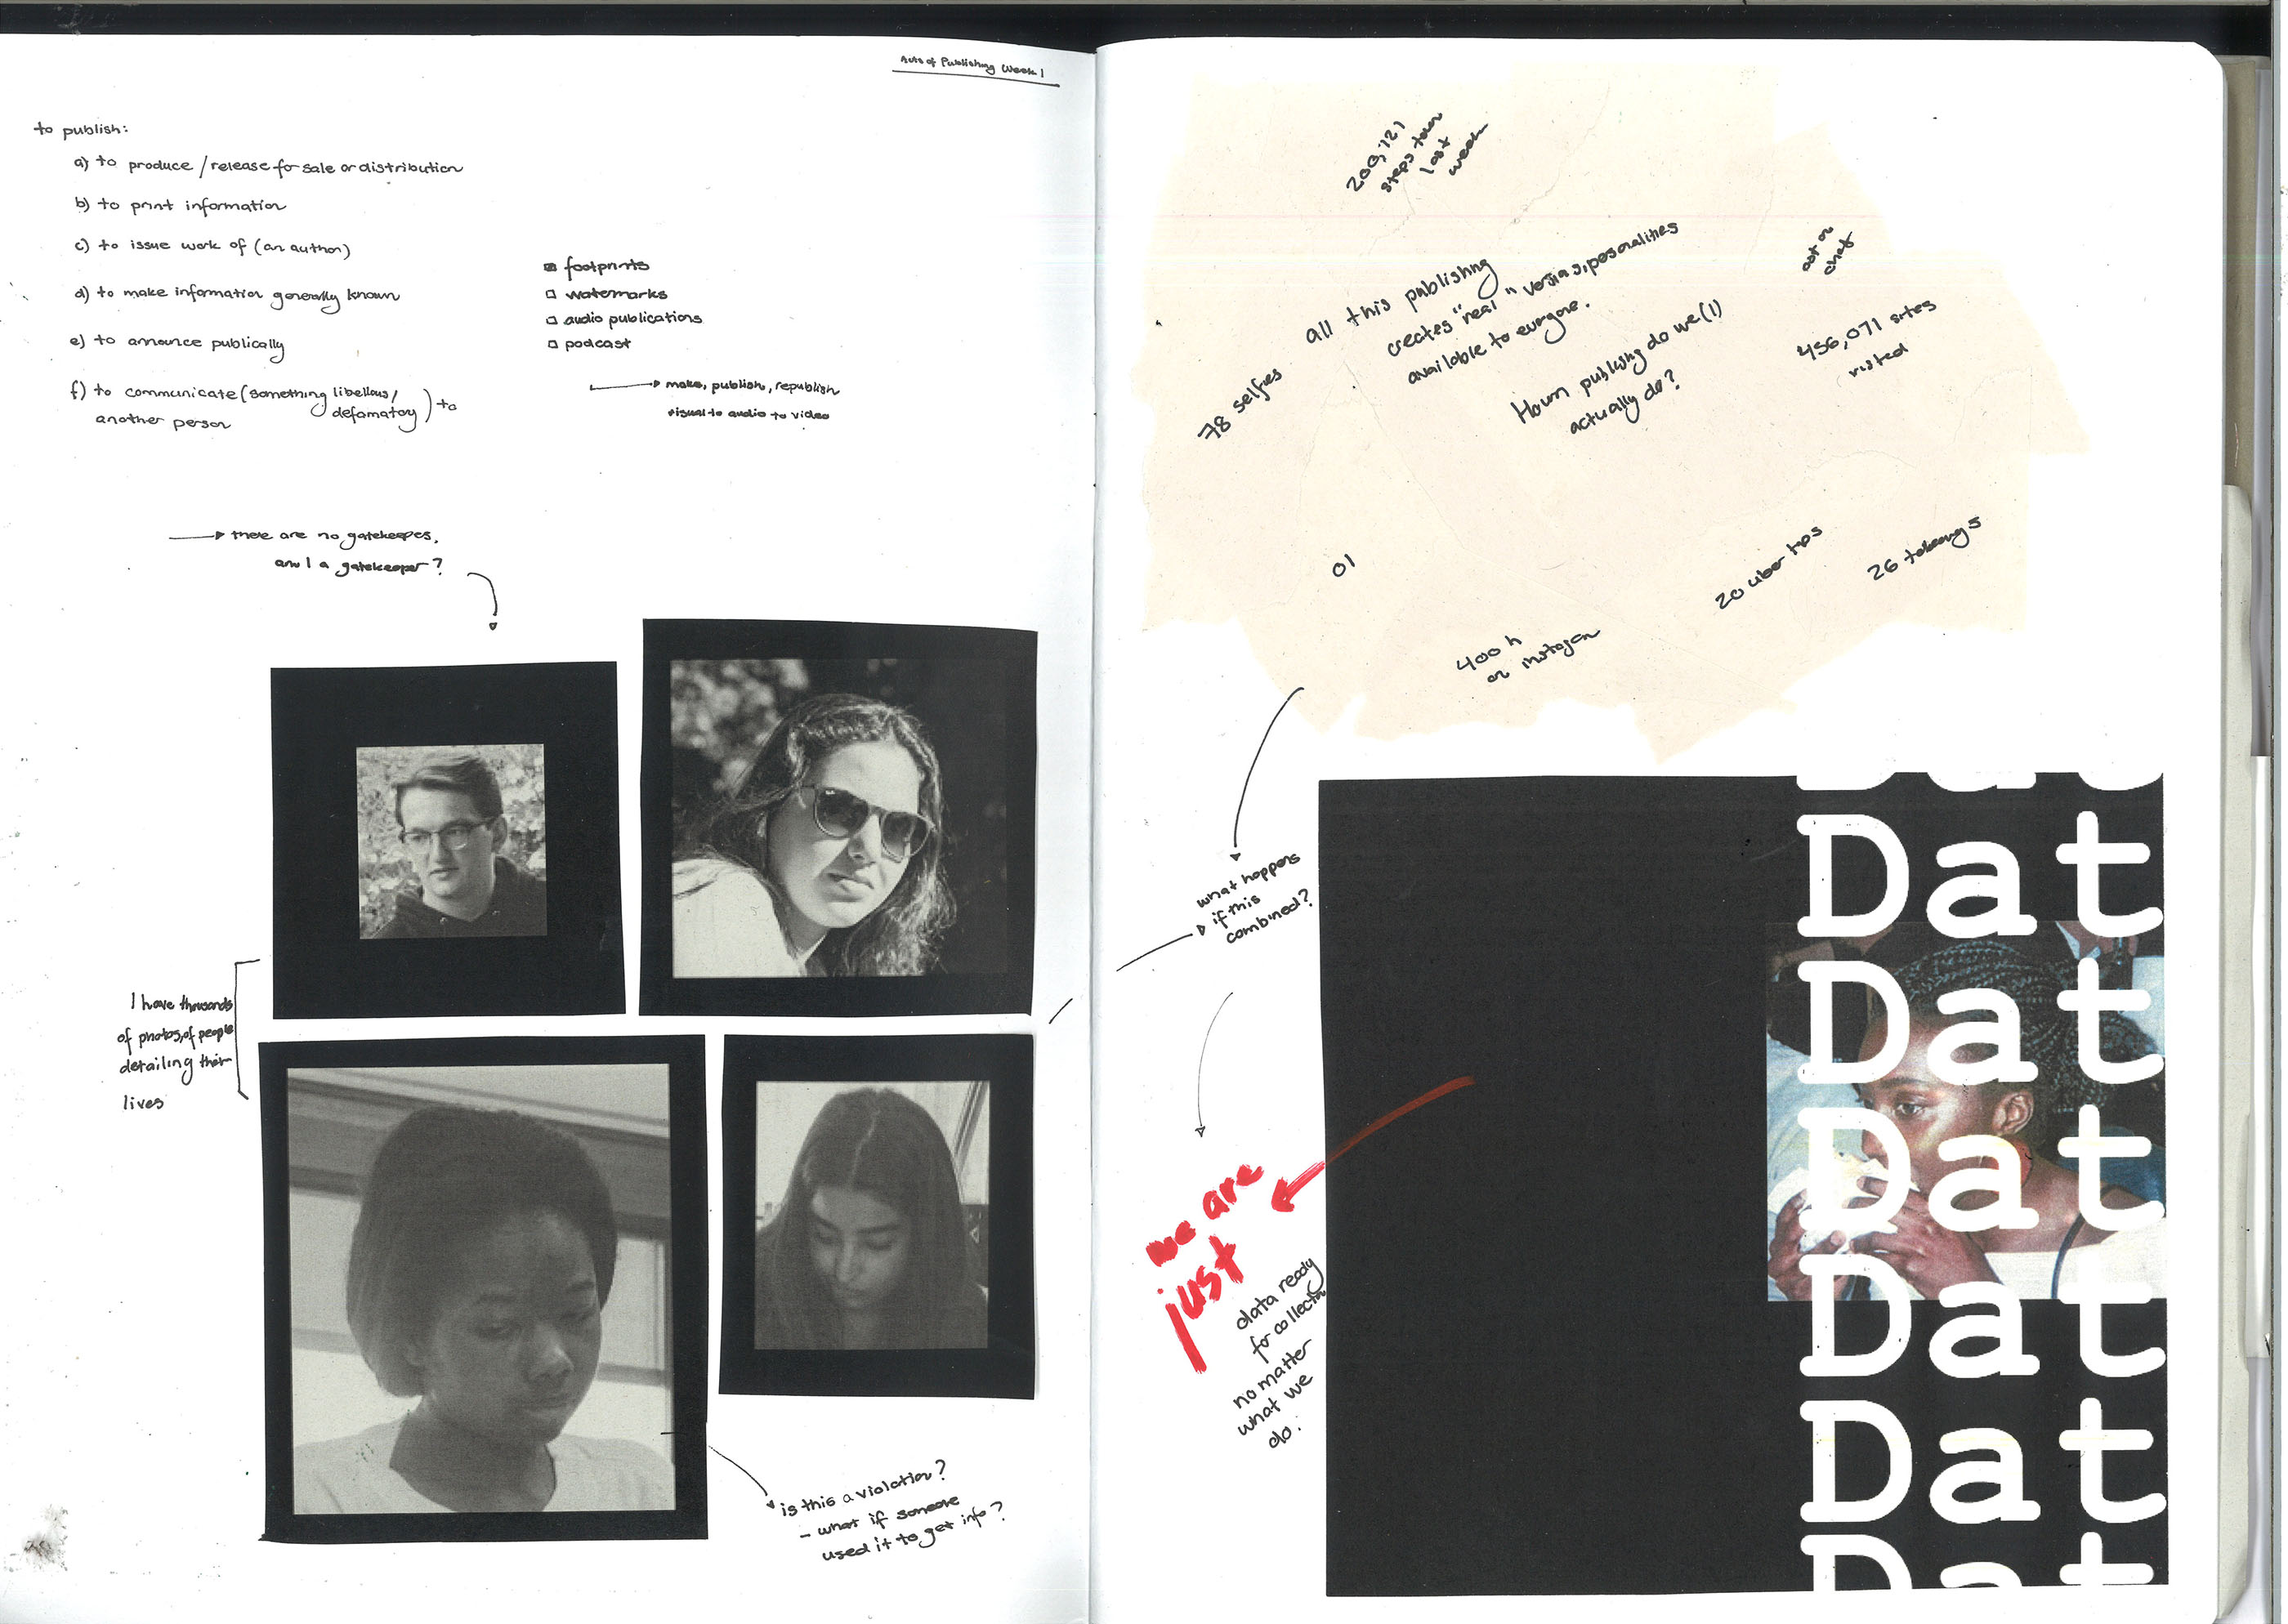 Acts of Publishing Week 1
to publish:
a) to produce / release for sale or distribution
b) to print information
c) to issue work of (an author)
d) to make information generally known
e) to announce publically
f) to communicate (something libellous/
defamatory) to
another person
footprints
watermarks
audio publications
podcast
make, publish, republish
visual to audio to video
there are no gatekeepes,
am I a gatekeeper?
I have thousands
of photos, of people
detailing their
lives
is this a violation?
- what if someone
used it to get info?
steps taken
last
week
all this publishing
creates "real" versions, pesonalities
available to everyone.
78 selfies
How publishing do we (I)
actually do?
456,071 sites
visited
01
20 uber trips
26 takeaways
400 h
on instagram
what happens
if this
combined?
we are
just
data ready
for collection
no matter
what we
do.
Dat
Dat
Dat
Dat
Dat
Dat
Dat